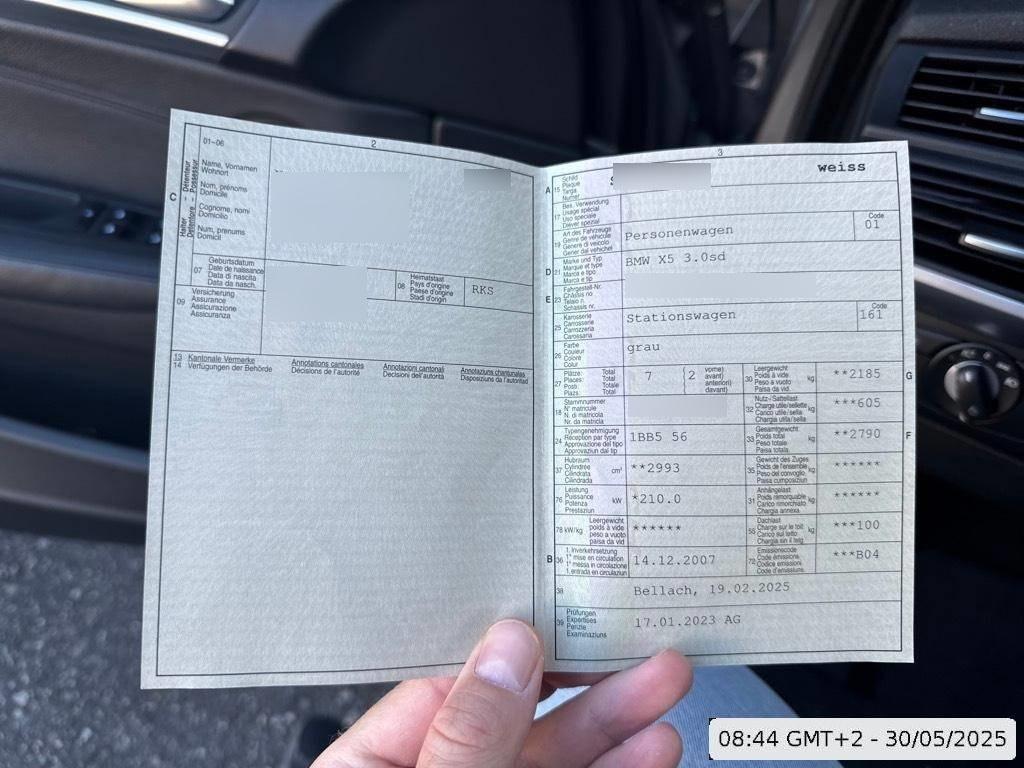 01-06
2
C
Halter
Détenteur
Detentore - Possessur
Name, Vornamen
Wohnort
Nom, prénoms
Domicile
Cognome, nomi
Domicilio
Num, prenums
Domicil
07
Geburtsdatum
Date de naissance
Data di nascita
Data da nasch.
08
Heimatstaat
Pays d'origine
Paese d'origine
Stadi d'origin
RKS
09
Versicherung
Assurance
Assicurazione
Assicuranza
13
14
Kantonale Vermerke
Verfügungen der Behörde
Annotations cantonales
Décisions de l'autorité
Annotazioni cantonali
Decisioni dell'autorità
Annotaziuns chantunalas
Disposiziuns da l'autoritad
3
A
15
Schild
Plaque
Targa
Numer
weiss
17
Bes. Verwendung
Usage spécial
Uso speciale
Diever spezial
19
Art des Fahrzeugs
Genre de véhicule
Genere di veicolo
Gener dal vehichel
Personenwagen
Code
01
D
21
Marke und Typ
Marque et type
Marca e tipo
Marca e tip
BMW X5 3.0sd
E
23
Fahrgestell-Nr.
Châssis no
Telaio n.
Schassis nr.
25
Karosserie
Carrosserie
Carrozzeria
Carossaria
Stationswagen
Code
161
26
Farbe
Couleur
Colore
Colur
grau
27
Plätze: Total
Places: Total
Posti: Totale
Plazs: Total
7
(2
vorne)
avant)
anteriori)
davant)
30
Leergewicht
Poids à vide
Peso a vuoto
Paisa da vid.
kg
**2185
G
18
Stammnummer
N° matricule
N. di matricola
Nr. da matricla
32
Nutz-/Sattellast
Charge utile/sellette
Carico utile/sella
Chargia utila/sella
kg
***605
24
Typengenehmigung
Réception par type
Approvazione del tipo
Approvaziun dal tip
1BB5 56
33
Gesamtgewicht
Poids total
Peso totale
Paisa totala
kg
**2790
F
37
Hubraum
Cylindrée
Cilindrata
Cilindrada
cm³
**2993
35
Gewicht des Zuges
Poids de l'ensemble
Peso del convoglio
Paisa cumposiziun
kg
******
76
Leistung
Puissance
Potenza
Prestaziun
kW
*210.0
31
Anhängelast
Poids remorquable
Carico rimorchiato
Chargia annexa
kg
******
78 kW/kg
Leergewicht
poids à vide
peso a vuoto
paisa da vid
******
55
Dachlast
Charge sur le toit
Carico sul tetto
Chargia sin il tetg
kg
***100
B
36
1. Inverkehrsetzung
1re mise en circulation
1a messa in circolazione
1. entrada en circulaziun
14.12.2007
72
Emissionscode
Code émissions
Codice emissioni
Code d'emissiuns
***B04
38
Bellach, 19.02.2025
39
Prüfungen
Expertises
Perizie
Examinaziuns
17.01.2023 AG
08:44 GMT+2 - 30/05/2025